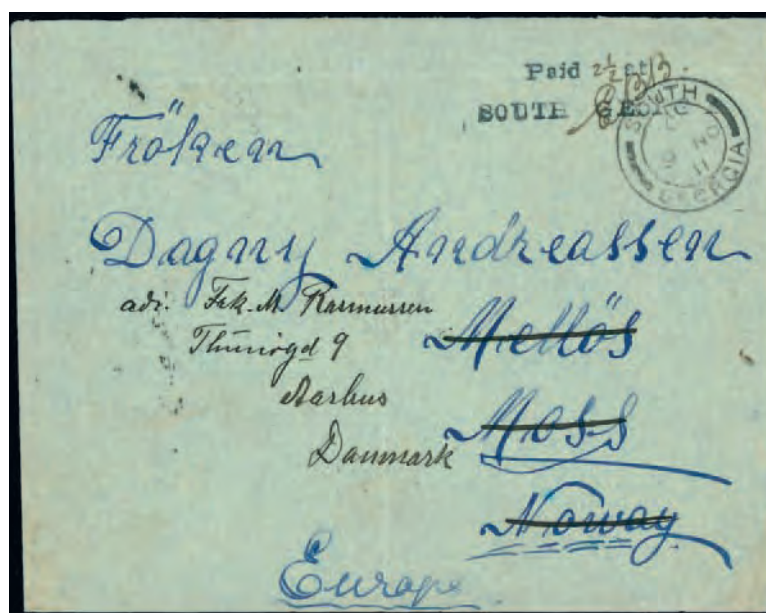 Paid 2½ at
SOUTH GEORG
SOUTH GEORGIA
NO
11
Fröken
Dagny Andreassen
adr. Frk. M. Rasmussen
9
Aarhus
Danmark
Mellös
Moss
Norway
Europe